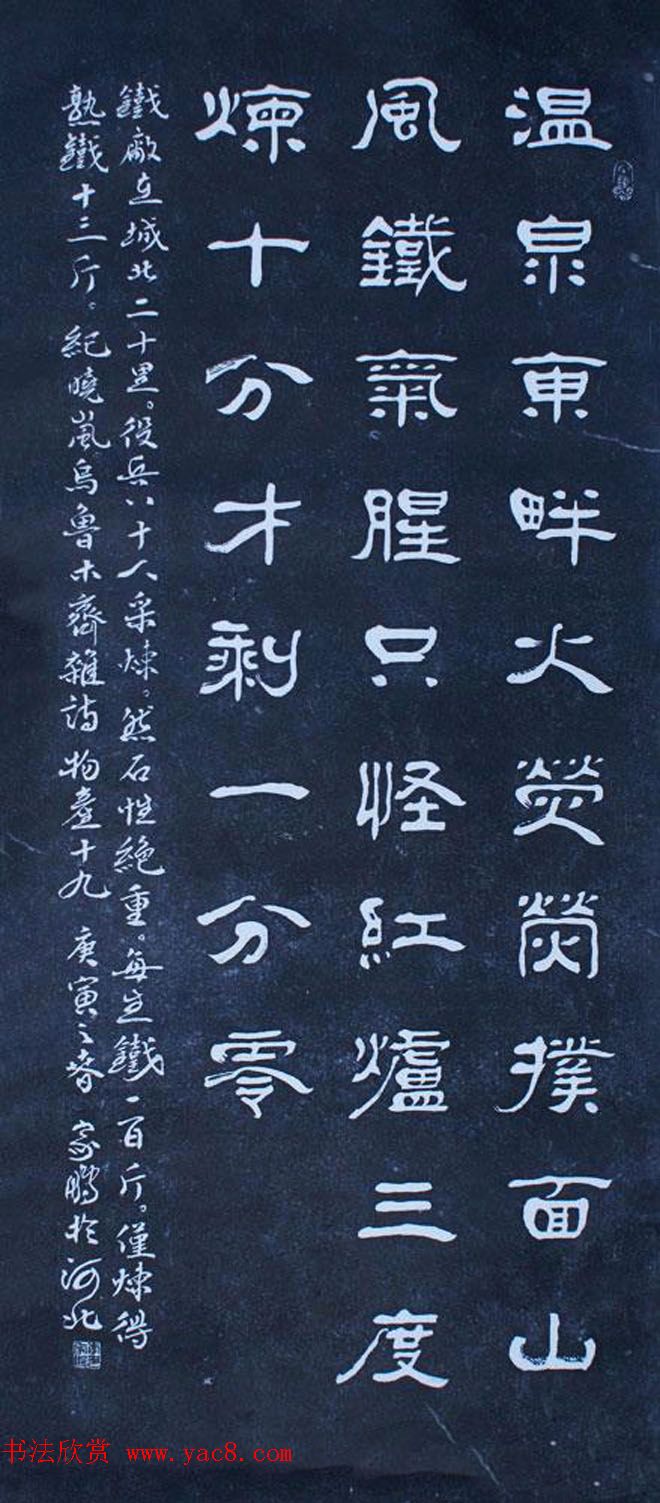 温泉東畔火熒熒撲面山
風鐵氣腥只怪紅爐三度
煉十分才剩一分零
鐵廠在城北二十里。役兵八十人采煉。然石性絶重。每生鐵一百斤。僅煉得
熟鐵十三斤。紀曉嵐烏魯木齊雜詩物產十九 庚寅之春 家鵬於河北
书法欣赏 www.yac8.com